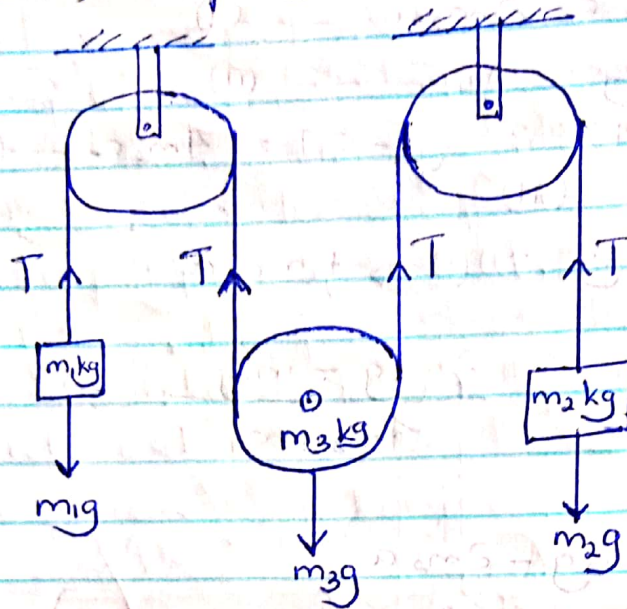 T T T T
m₁kg
m₂kg
m₃kg
m₁g
m₂g
m₃g